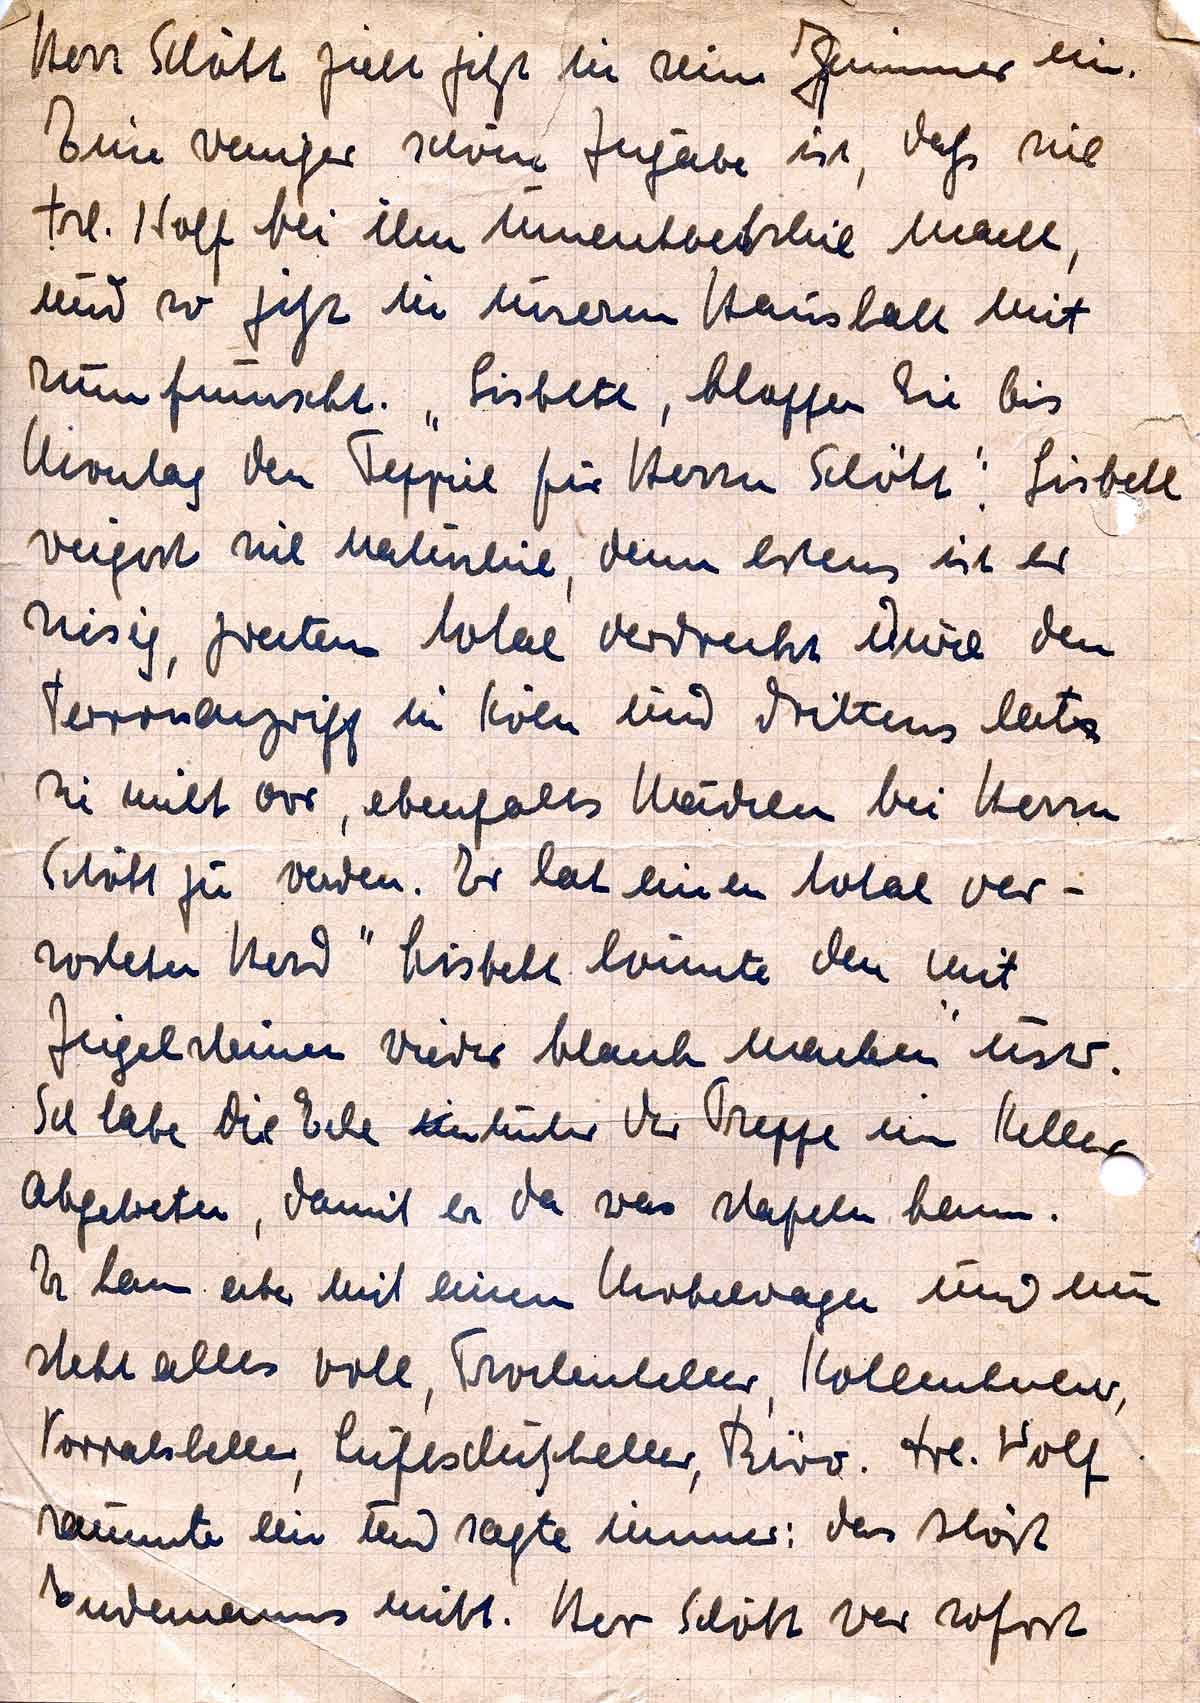 Herr Schött zieht jetzt in sein Zimmer ein.
Eine weniger schöne Zugabe ist, daß sich
Frl. Wolf bei ihm unentbehrlich macht,
und so jetzt in unserm Haushalt mit
rumfuhrscht. „Lisbeth, kloppen Sie bis
Montag den Teppich für Herrn Schött". Lisbeth
weigert sich natürlich, denn erstens ist er
riesig, zweitens total verdreckt durch den
Terrorangriff in Köln und drittens hat
sie nicht vor, ebenfalls Mädchen bei Herrn
Schött zu werden. Er hat einen total ver-
rosteten Herd " Lisbeth könnte den mit
Ziegelsteinen wieder blank machen" usw.
Ich habe die Ecke hinter der Treppe im Keller
abgetreten, damit er da was stapeln kann.
Er kam aber mit einem Möbelwagen und nun
steht alles voll, Trockenkeller, Kohlenkeller,
Vorratskeller, Luftschutzkeller, Büro. Frl. Wolf
räumte ein und sagte immer: das stört
Endemanns nicht. Herr Schött war sofort